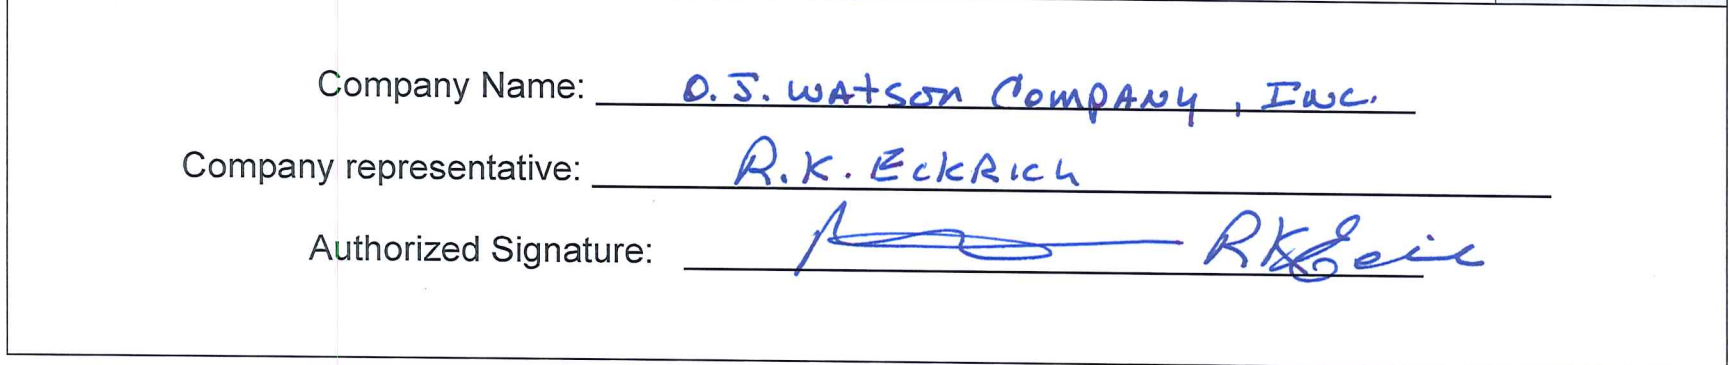 Company Name: O. J. WAtson COmpANy, INC.
Company representative: R. K. EckRich
Authorized Signature: RK